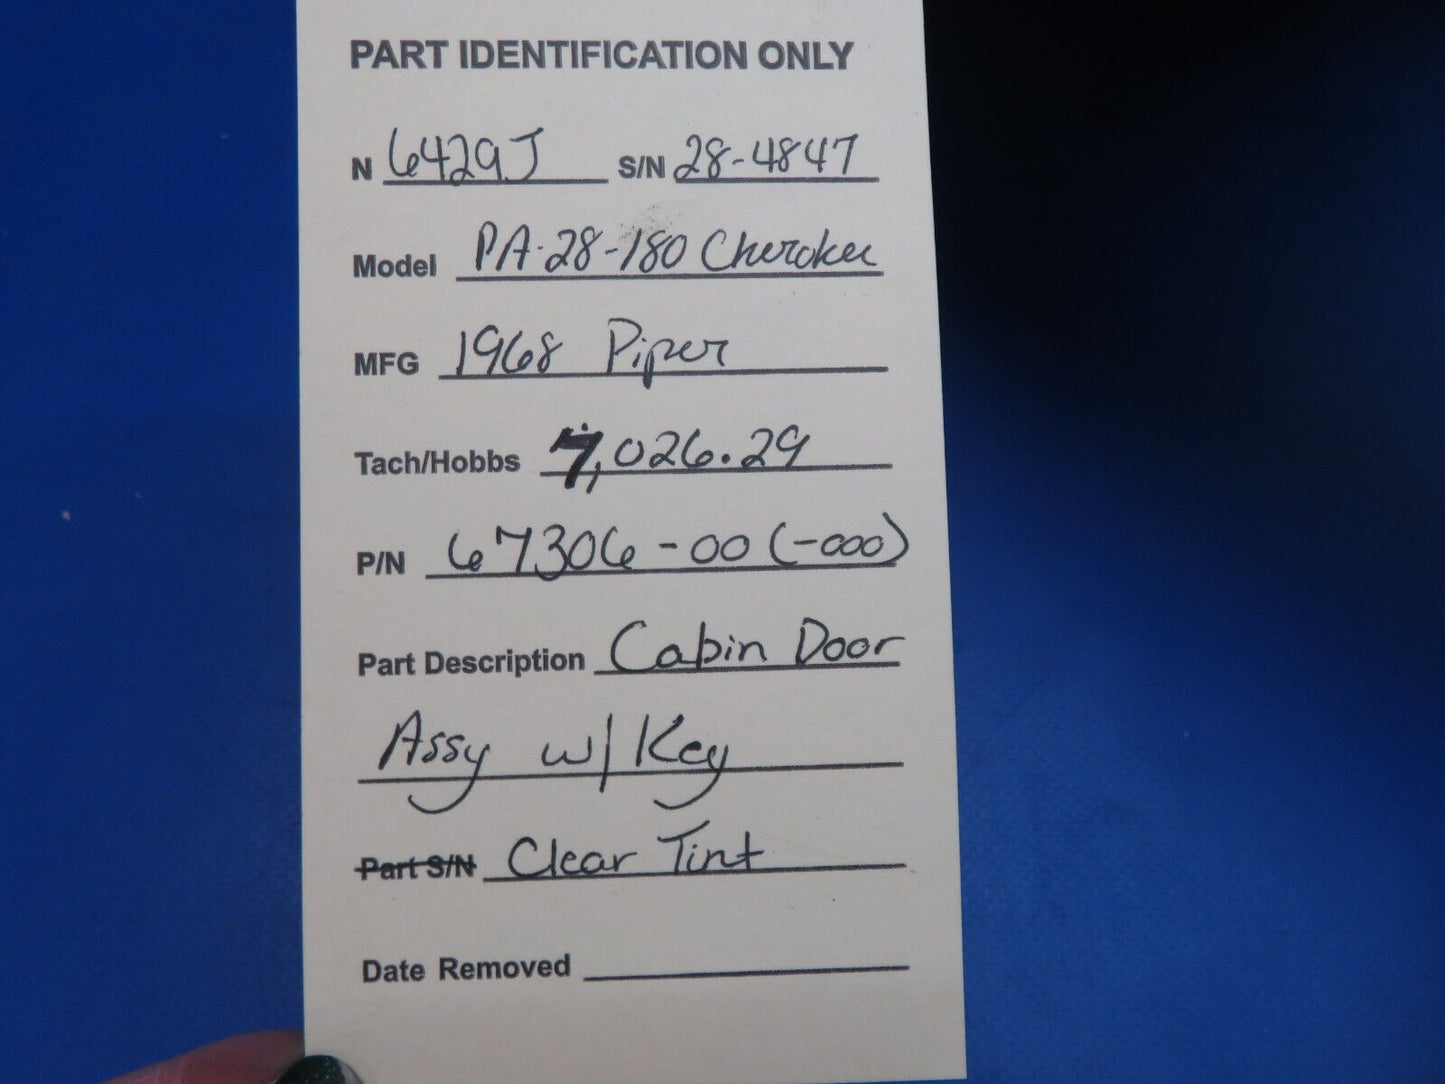 PART IDENTIFICATION ONLY
N 6429J S/N 28-4847
Model PA-28-180 Cherokee
MFG 1968 Piper
Tach/Hobbs 7,026.29
P/N 67306-00 (-000)
Part Description Cabin Door
Assy w/ Key
Part S/N Clear Tint
Date Removed